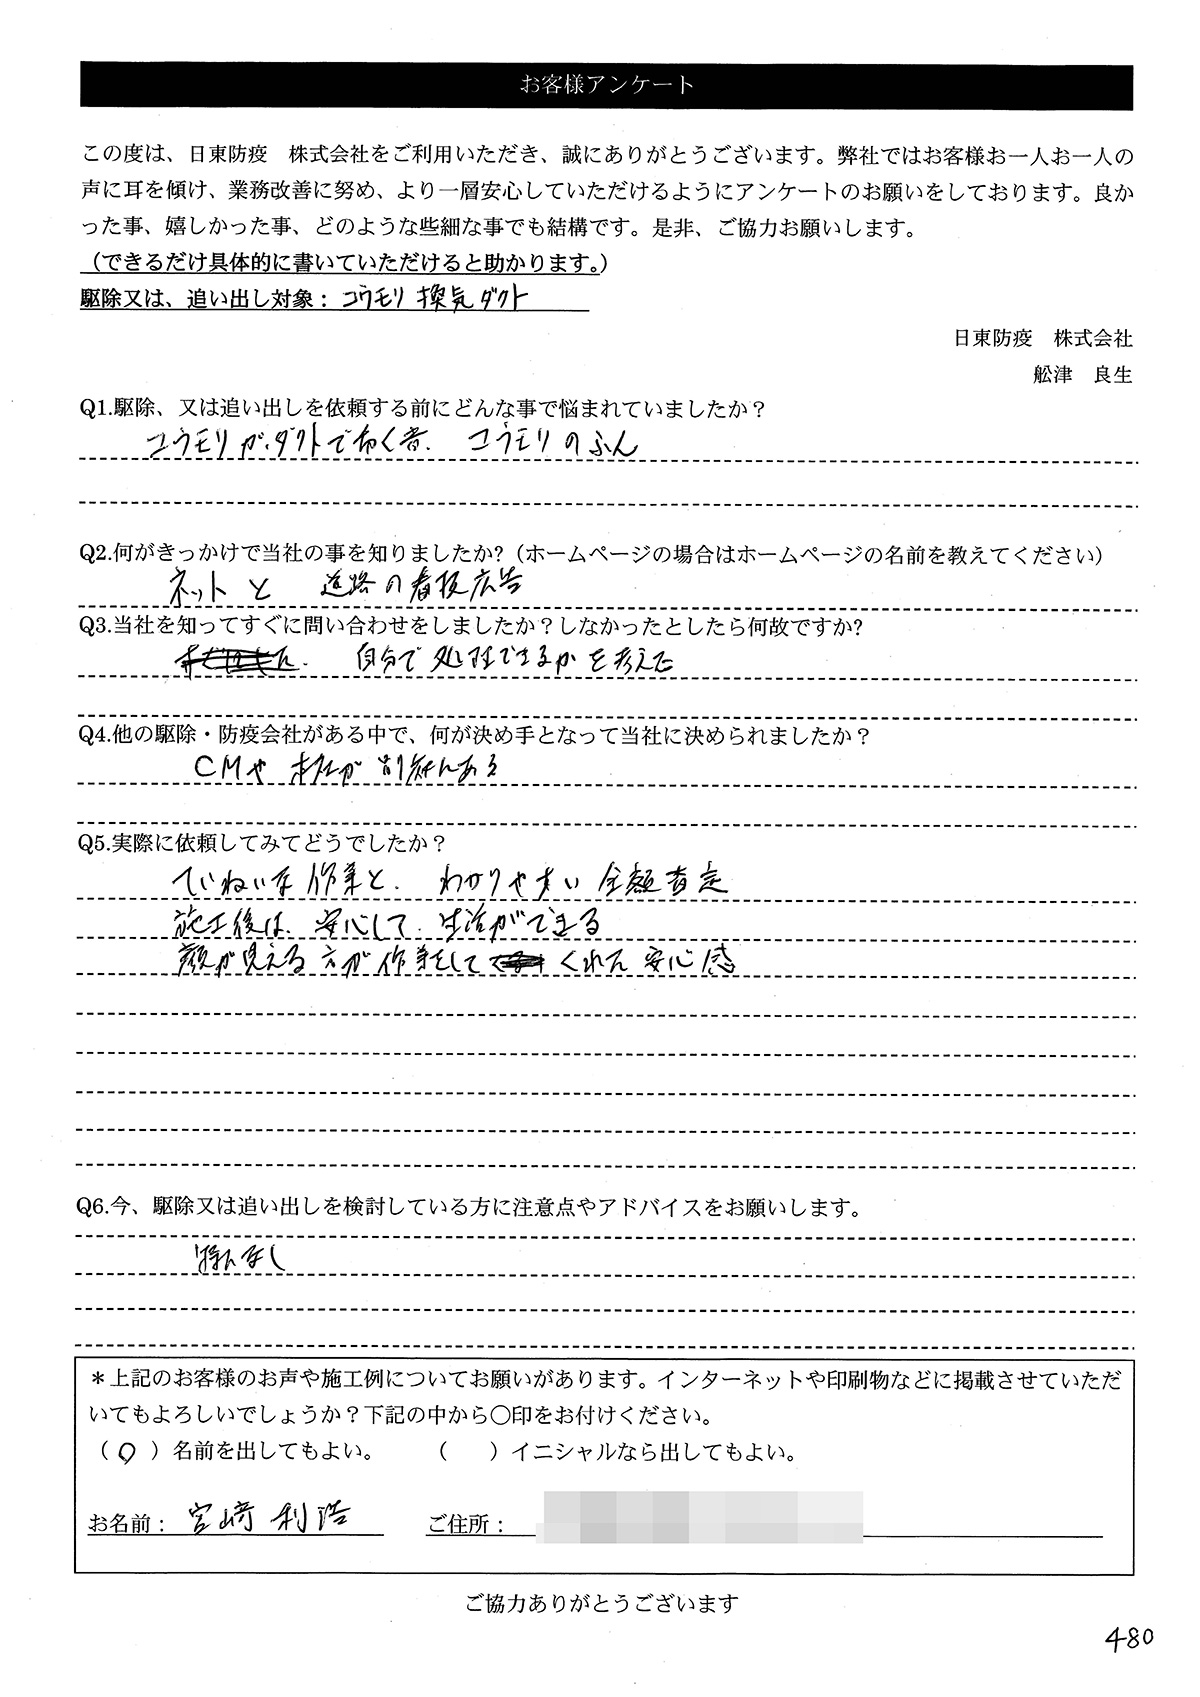 お客様アンケート
この度は、日東防疫　株式会社をご利用いただき、誠にありがとうございます。弊社ではお客様お一人お一人の
声に耳を傾け、業務改善に努め、より一層安心していただけるようにアンケートのお願いをしております。良か
った事、嬉しかった事、どのような些細な事でも結構です。是非、ご協力お願いします。
（できるだけ具体的に書いていただけると助かります。）
駆除又は、追い出し対象：コウモリ 換気ダクト
日東防疫　株式会社
舩津　良生
Q1.駆除、又は追い出しを依頼する前にどんな事で悩まれていましたか？
コウモリがダクトで 音、 コウモリのふん
Q2.何がきっかけで当社の事を知りましたか?（ホームページの場合はホームページの名前を教えてください）
ネットと 道路の看板広告
Q3.当社を知ってすぐに問い合わせをしましたか？しなかったとしたら何故ですか?
自分で処理できるかを考えた
Q4.他の駆除・防疫会社がある中で、何が決め手となって当社に決められましたか？
CMや 本社が
Q5.実際に依頼してみてどうでしたか？
ていねいな作業と、わかりやすい金額査定
施工後は、安心して、生活ができる
顔が見える方が作業をして くれた安心感
Q6.今、駆除又は追い出しを検討している方に注意点やアドバイスをお願いします。
特になし
＊上記のお客様のお声や施工例についてお願いがあります。インターネットや印刷物などに掲載させていただ
いてもよろしいでしょうか？下記の中から〇印をお付けください。
（ 〇 ）名前を出してもよい。　　（　　）イニシャルなら出してもよい。
お名前： 宮﨑 利浩　　ご住所：
ご協力ありがとうございます
480